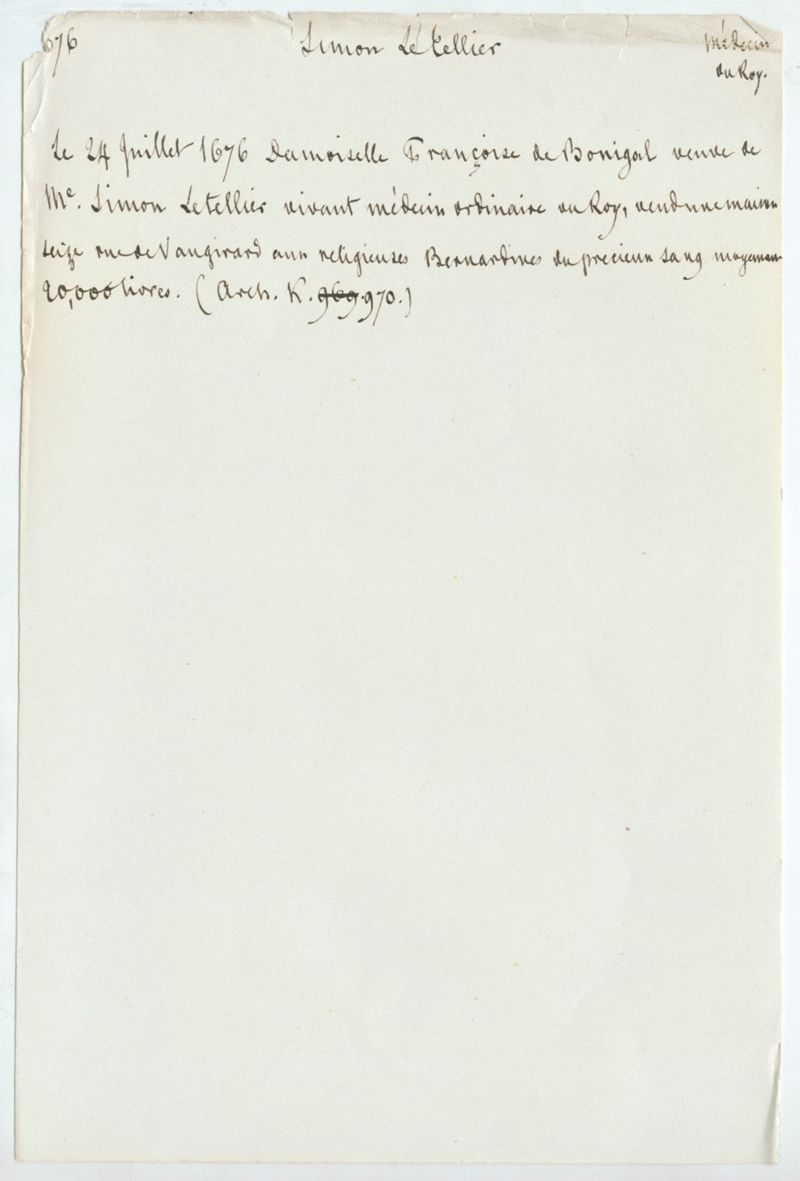 676 Simon Letellier Médecin
du Roy.
Le 24 Juillet 1676 Damoiselle Françoise de Bonigal veuve de
Me. Simon Letellier vivant médecin ordinaire du Roy, vend une maison
seize rue de Vaugirard aux religieuses Bernardines du précieux sang moyennant
20,000 livres. (Arch. K. 969 970.)